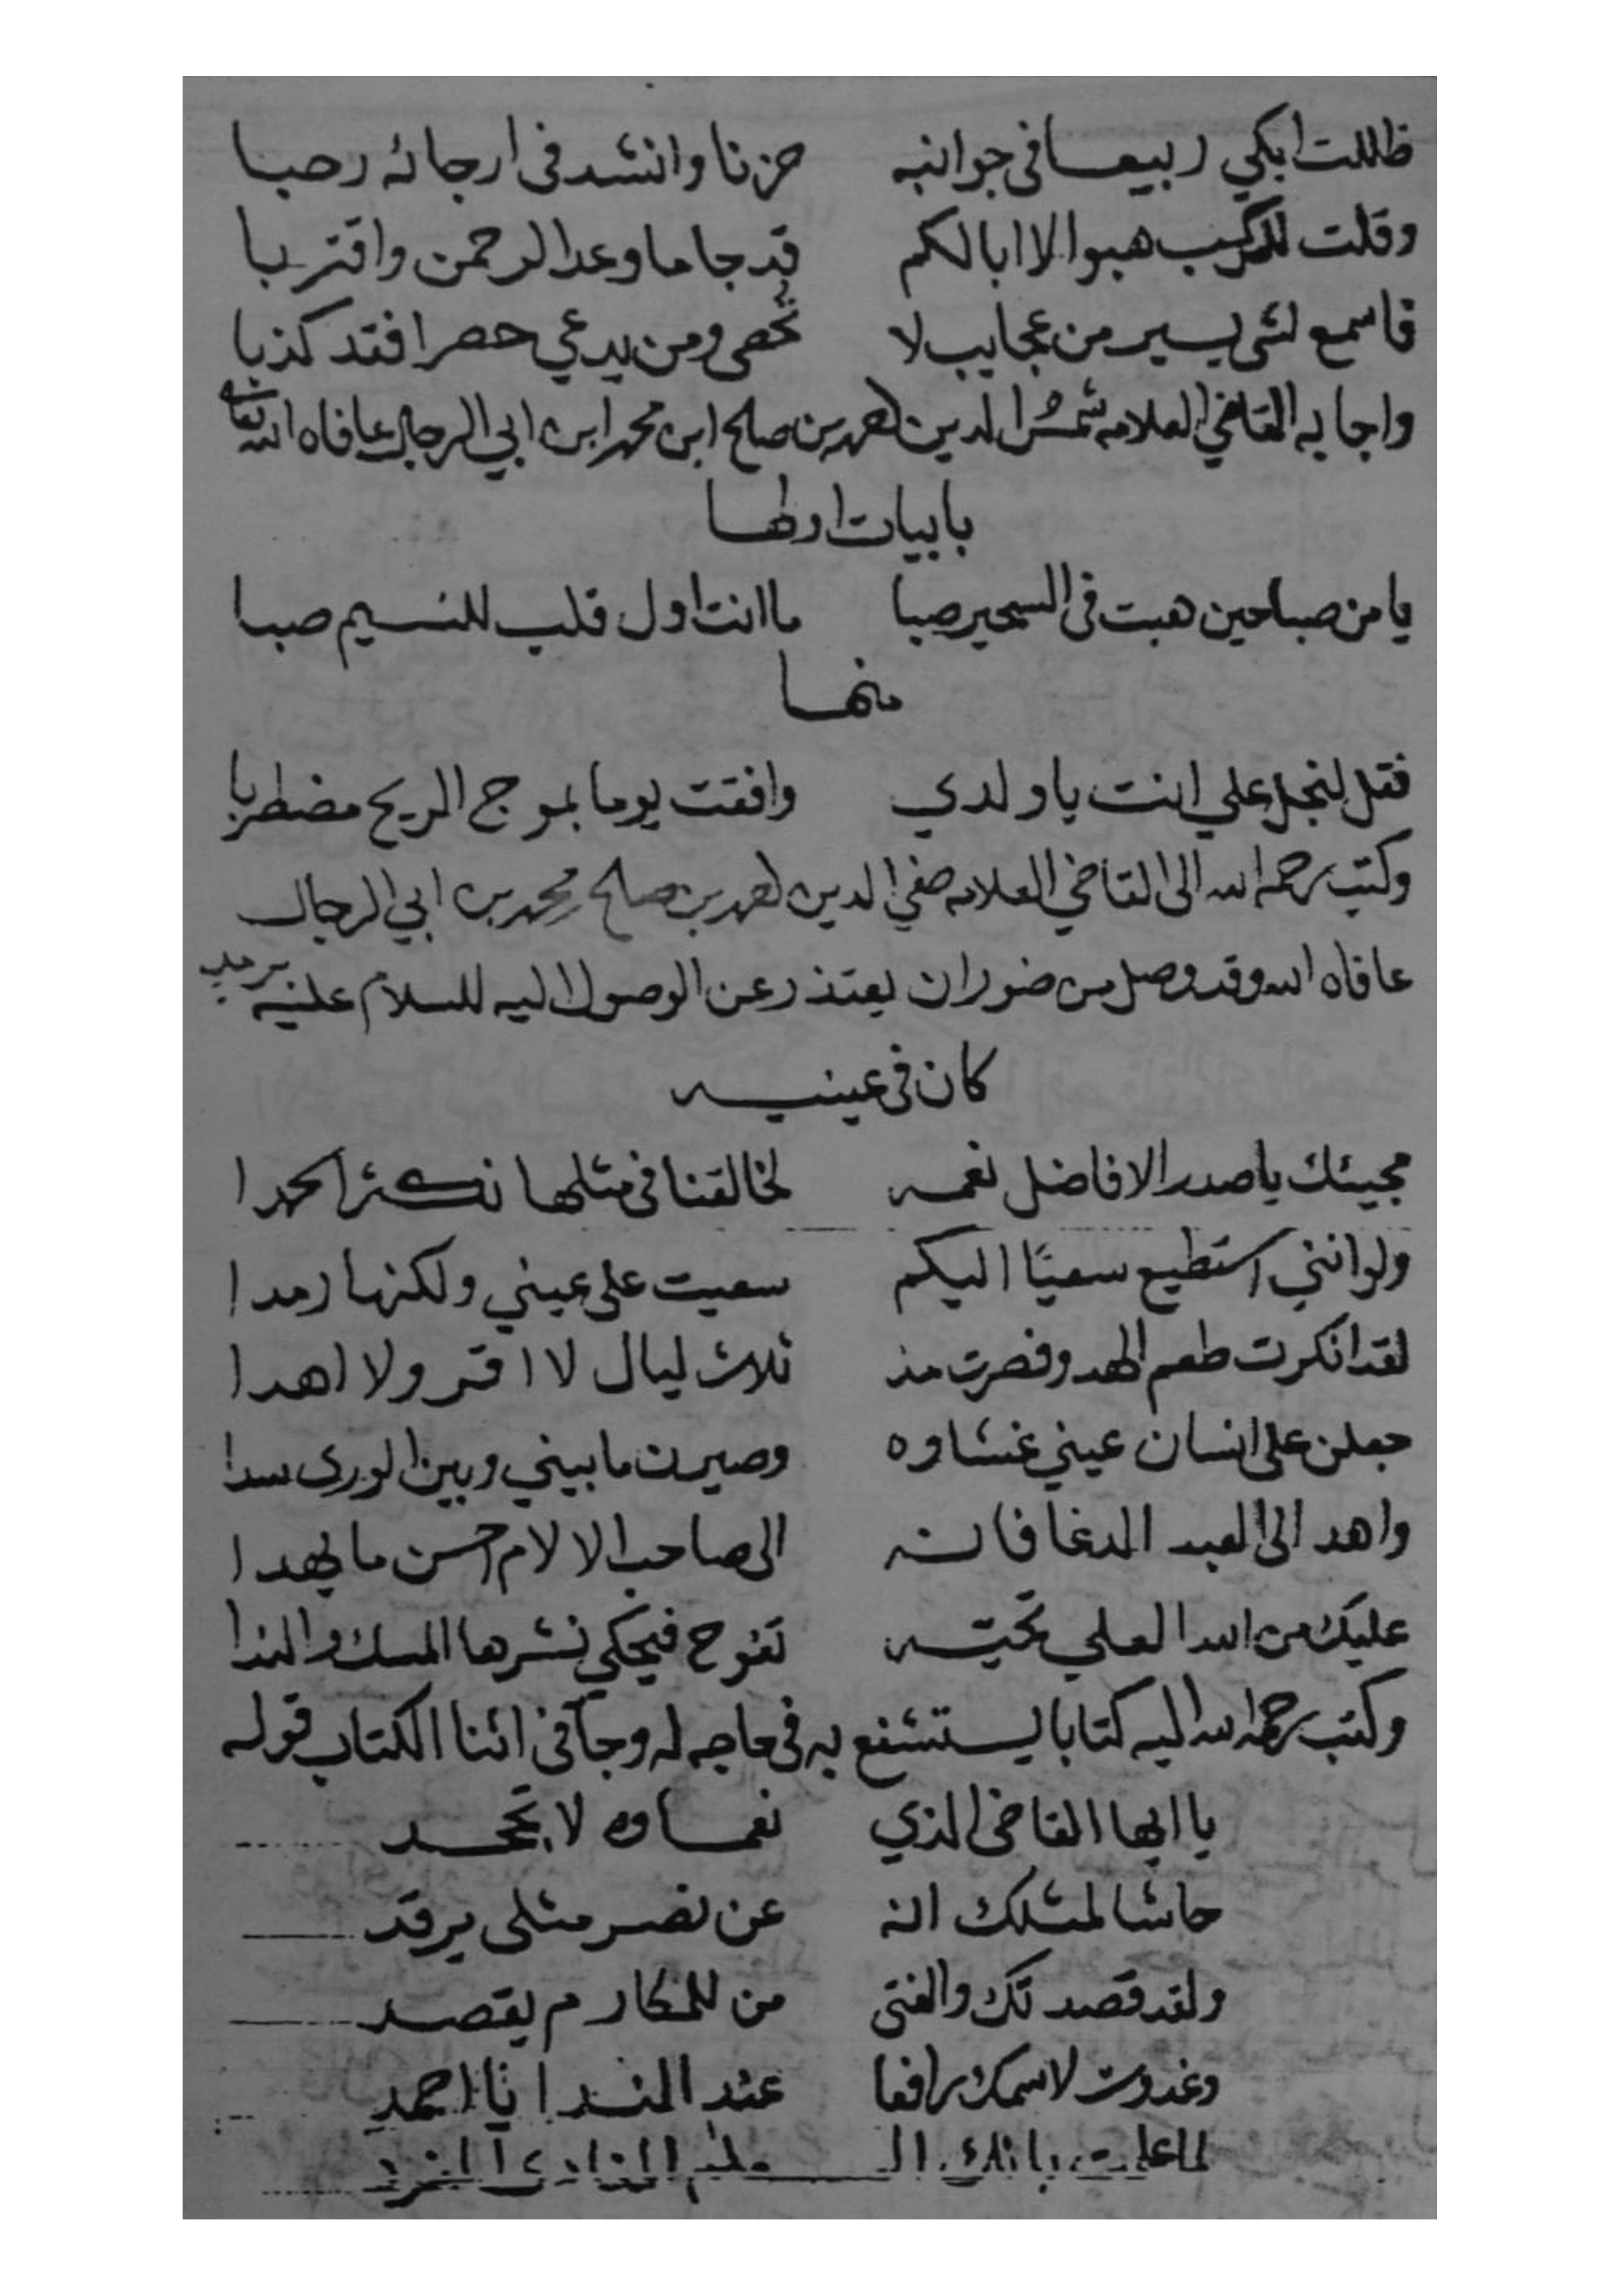 ظللت ابكي ربيعا في جوانبه حزنا وانشد في ارجائه رحبا
وقلت للركب هبوا لا ابا لكم قد جا ما وعد الرحمن واقتربا
فاسمع لشي يسير من عجايب لا تحصى ومن يدعي حصرا فقد كذبا
واجابه القاضي العلامه شمس الدين احمد بن صلح ابن محمد ابن ابي الرجال عافاه الله تعالى
بابيات اولها
يا من صبا حين هبت في السحير صبا ما انت اول قلب للنسيم صبا
منها
فقل لنجل علي انت يا ولدي وافقت يوما بموج الريح مضطربا
وكتب رحمه الله الى القاضي العلامه صفي الدين احمد بن صلح محمد بن ابي الرجال
عافاه الله وقد وصل من ضوران يعتذر عن الوصول اليه للسلام عليه برمد
كان في عينيه
مجيئك يا صدر الافاضل نعمه لخالقنا في مثلها نكثر الحمدا
ولو انني استطيع سعيًا اليكم سعيت على عيني ولكنها رمدا
لقد انكرت طعم الهدو فصرت مذ ثلاث ليال لا اقر ولا اهدا
جعلن على انسان عيني غشاوه وصيرن ما بيني وبين الورى سدا
واهد الى العبد الدعا فانه الى صاحب الالام احسن ما يهدا
عليك من الله العلي تحيته تفوح فيحكي نشرها المسك والندا
وكتب رحمه الله اليه كتابا يستشفع به في حاجه له وجآ في اثنا الكتاب قوله
يا ايها القاضي الذي نعماوه لا تجحد
حاشا لمثلك انه عن نصر مثلي يرقد
ولقد قصدتك والفتى من للمكارم يقصد
وغدوت لاسمك رافعا عند الندا يا احمد
لما علمت بانك ال